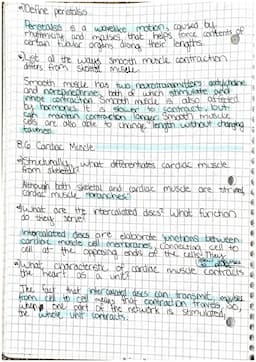 • Define peristalsis
Peristalsis is a wavelike motion, caused by
rhythmic and impulses, that helps force contents of
certain tubular organs along their lengths.
• List all the ways smooth muscle contraction
differs from skeletal muscle
Smooth muscle has two neurotransmitters acetylcholine
and norepinephrine, both of which stimulate and
inhibit contraction. Smooth muscle is also affected
by hormones. It is slower to contract, but
can maintain contraction longer. Smooth muscle
cells are also able to change length without changing
tautness.
8.6 Cardiac Muscle
• Structurally, what differentiates cardiac muscle
from skeletal?
Although both skeletal and cardiac muscle are striated,
cardiac muscle branches.
• What are the intercalated discs? What function
do they serve?
Intercalated discs are elaborate junctions between
cardiac muscle cell membranes, connecting cell to
cell at the opposing ends of the cells. They
• What characteristic of cardiac muscle contracts
the heart as a unit?
The fact that intercalated discs can transmit impulses
from cell to cell means that contraction travels. So,
when one part of the network is stimulated,
the whole unit contracts.